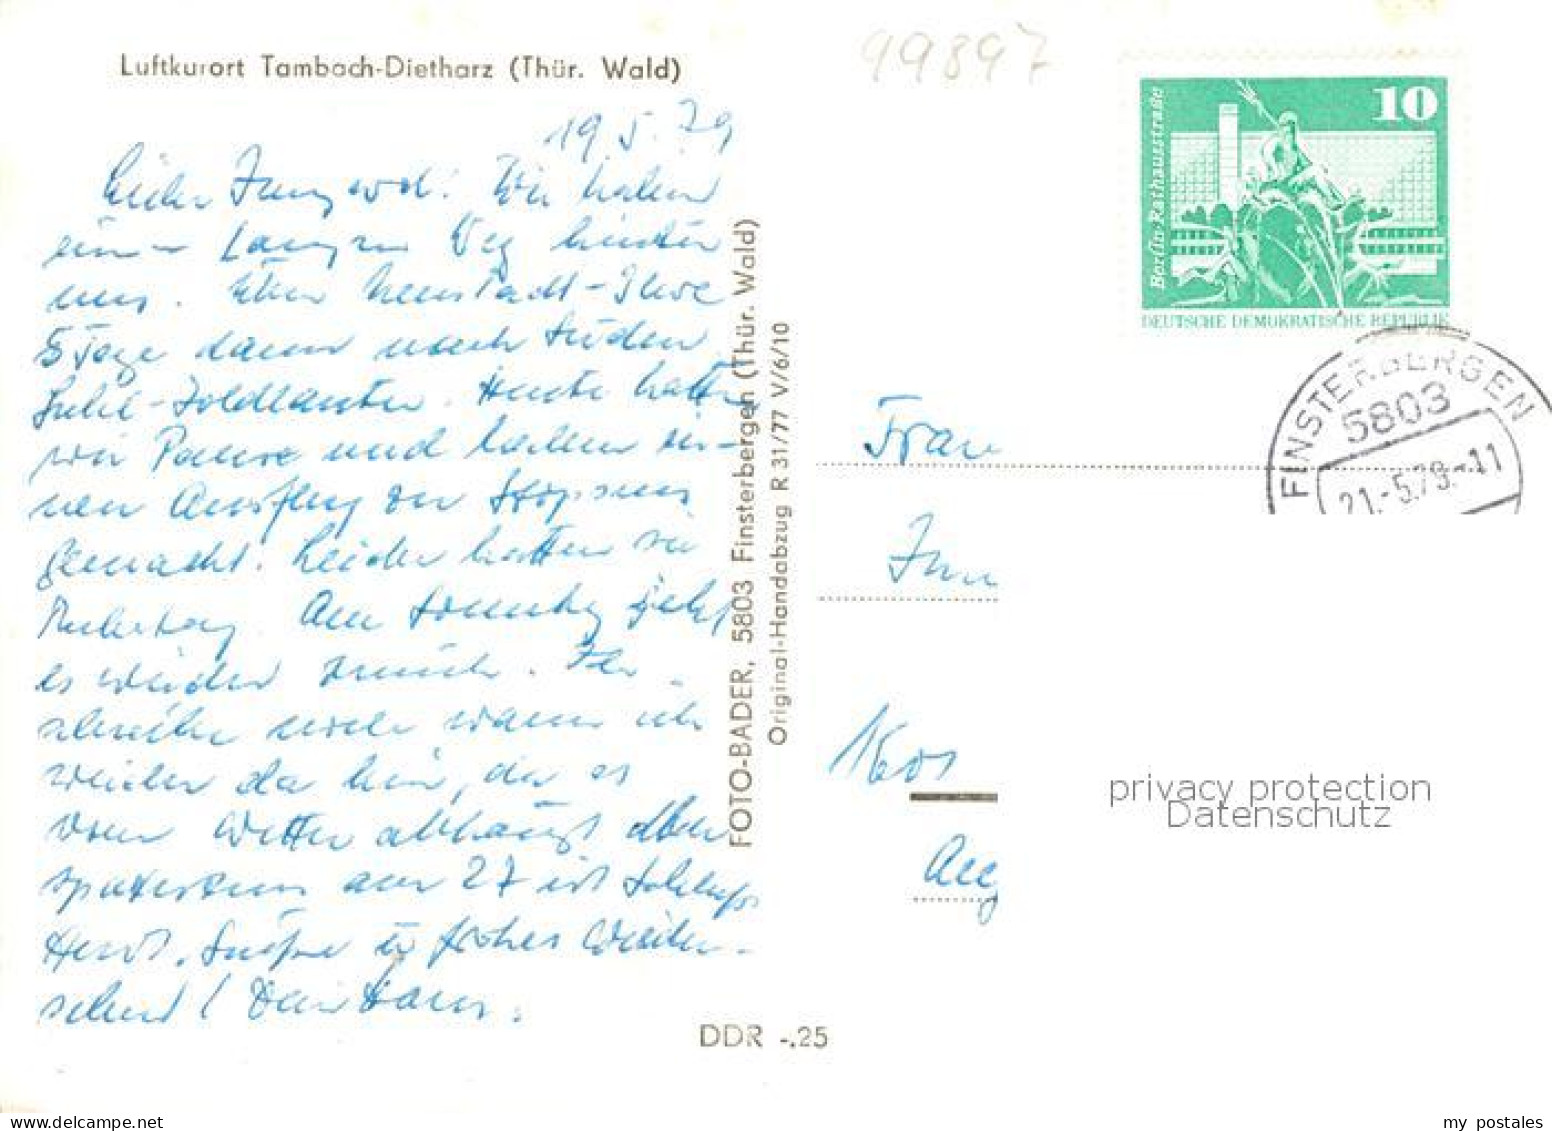 Luftkurort Tambach-Dietharz (Thür. Wald)
99897
19 5. 79
Wir haben
Langen Weg hinter
uns. Über Neustadt-
5 Tage dann nach Süden
Suhl- Heute hatten
wir Pause und haben ei-
nen Ausflug
gemacht. Leider hatten sie
Ruhetag. Am Sonntag geht
es weiter
schreibe wann ich
wieder da bin, da es
vom Wetter abhängt Aber
spätestens am 27 ist Schluß
Grüße u frohes Wieder-
sehen! Dein Hans.
FOTO-BADER, 5803 Finsterbergen (Thür. Wald)
Original-Handabzug R 31/77 V/6/10
DDR -.25
10
Berlin-Rathausstraße
DEUTSCHE DEMOKRATISCHE REPUBLIK
FINSTERBERGEN
5803
21.-5.79.-11
Frau
privacy protection
Datenschutz
my postales